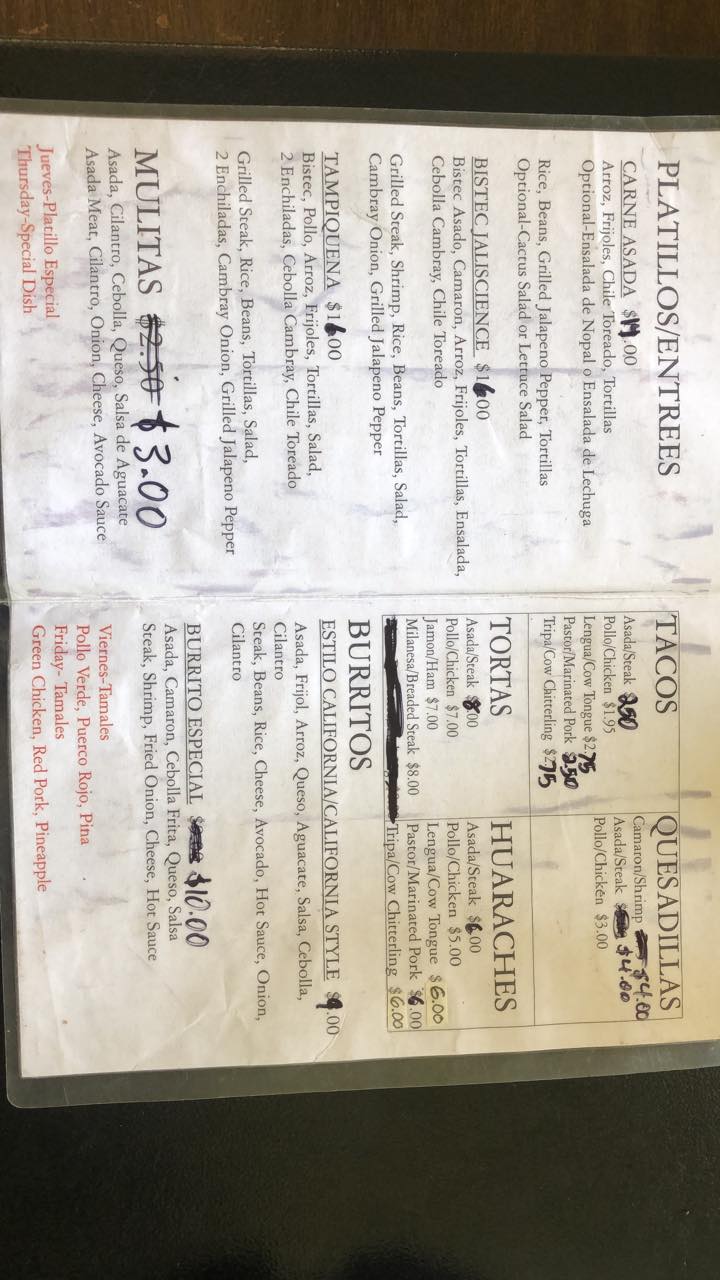 PLATILLOS/ENTREES
CARNE ASADA $14.00
Arroz, Frijoles, Chile Toreado, Tortillas
Optional-Ensalada de Nopal o Ensalada de Lechuga
Rice, Beans, Grilled Jalapeno Pepper, Tortillas
Optional-Cactus Salad or Lettuce Salad
BISTEC JALISCIENCE $16.00
Bistec Asado, Camaron, Arroz, Frijoles, Tortillas, Ensalada,
Cebolla Cambray, Chile Toreado
Grilled Steak, Shrimp, Rice, Beans, Tortillas, Salad,
Cambray Onion, Grilled Jalapeno Pepper
TAMPIQUENA $16.00
Bistec, Pollo, Arroz, Frijoles, Tortillas, Salad,
2 Enchiladas, Cebolla Cambray, Chile Toreado
Grilled Steak, Rice, Beans, Tortillas, Salad,
2 Enchiladas, Cambray Onion, Grilled Jalapeno Pepper
MULITAS $2.50 $3.00
Asada, Cilantro, Cebolla, Queso, Salsa de Aguacate
Asada Meat, Cilantro, Onion, Cheese, Avocado Sauce
Jueves-Platillo Especial
Thursday-Special Dish
TACOS
Asada/Steak 2.50
Pollo/Chicken $1.95
Lengua/Cow Tongue $2.75
Pastor/Marinated Pork 2.50
Tripa/Cow Chitterling $2.75
QUESADILLAS
Camaron/Shrimp $4.00
Asada/Steak $4.00
Pollo/Chicken $3.00
TORTAS
Asada/Steak $8.00
Pollo/Chicken $7.00
Jamon/Ham $7.00
Milanesa/Breaded Steak $8.00
HUARACHES
Asada/Steak $6.00
Pollo/Chicken $5.00
Lengua/Cow Tongue $6.00
Pastor/Marinated Pork $6.00
Tripa/Cow Chitterling $6.00
BURRITOS
ESTILO CALIFORNIA/CALIFORNIA STYLE $9.00
Asada, Frijol, Arroz, Queso, Aguacate, Salsa, Cebolla,
Cilantro
Steak, Beans, Rice, Cheese, Avocado, Hot Sauce, Onion,
Cilantro
BURRITO ESPECIAL $10.00
Asada, Camaron, Cebolla Frita, Queso, Salsa
Steak, Shrimp, Fried Onion, Cheese, Hot Sauce
Viernes-Tamales
Pollo Verde, Puerco Rojo, Pina
Friday- Tamales
Green Chicken, Red Pork, Pineapple